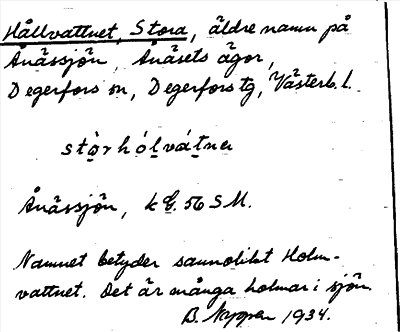 Hållvattnet, Stora, äldre namn på
Ånässjön, Ånäsets ägor,
Degerfors sn, Degerfors tg, Västerb. l.
stòrhólvátne
Ånässjön, k G. 56 SM.
Namnet betyder sannolikt Holm-
vattnet. Det är många holmar i sjön.
B. 1934.